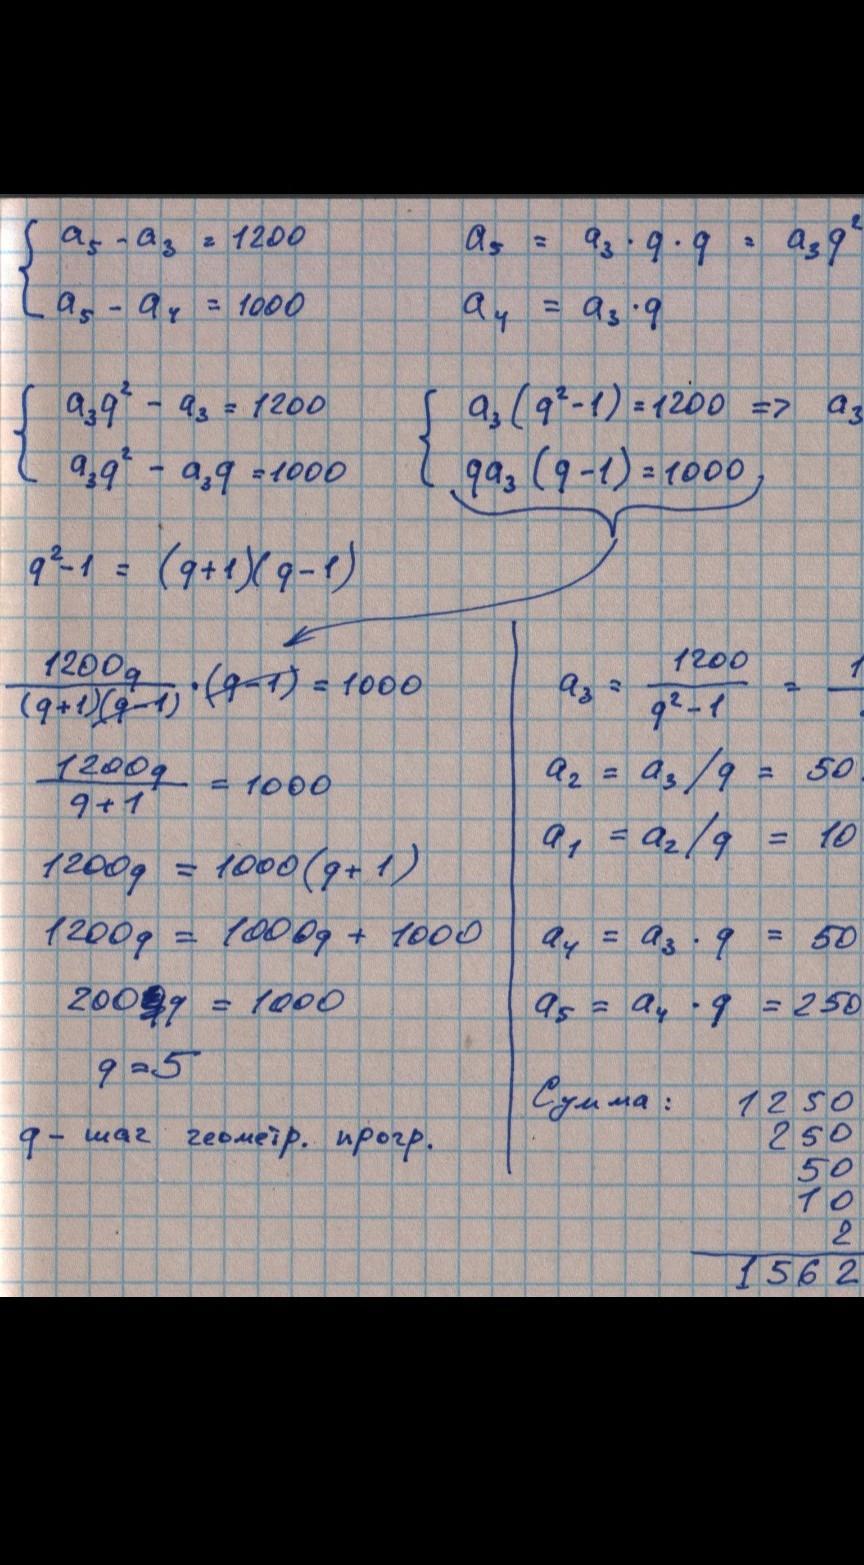 { a₅ - a₃ = 1200
a₅ = a₃ · q · q = a₃q²
a₅ - a₄ = 1000
a₄ = a₃ · q
{ a₃q² - a₃ = 1200
{ a₃(q²-1) = 1200 => a₃
a₃q² - a₃q = 1000
qa₃(q-1) = 1000
q²-1 = (q+1)(q-1)
1200q / (q+1)(q-1) · (q-1) = 1000
1200q / q+1 = 1000
1200q = 1000(q+1)
1200q = 1000q + 1000
200q = 1000
q = 5
q - шаг геометр. прогр.
a₃ = 1200 / q²-1 = 1
a₂ = a₃/q = 50
a₁ = a₂/q = 10
a₄ = a₃ · q = 50
a₅ = a₄ · q = 250
Сумма: 1250
250
50
10
2
1562